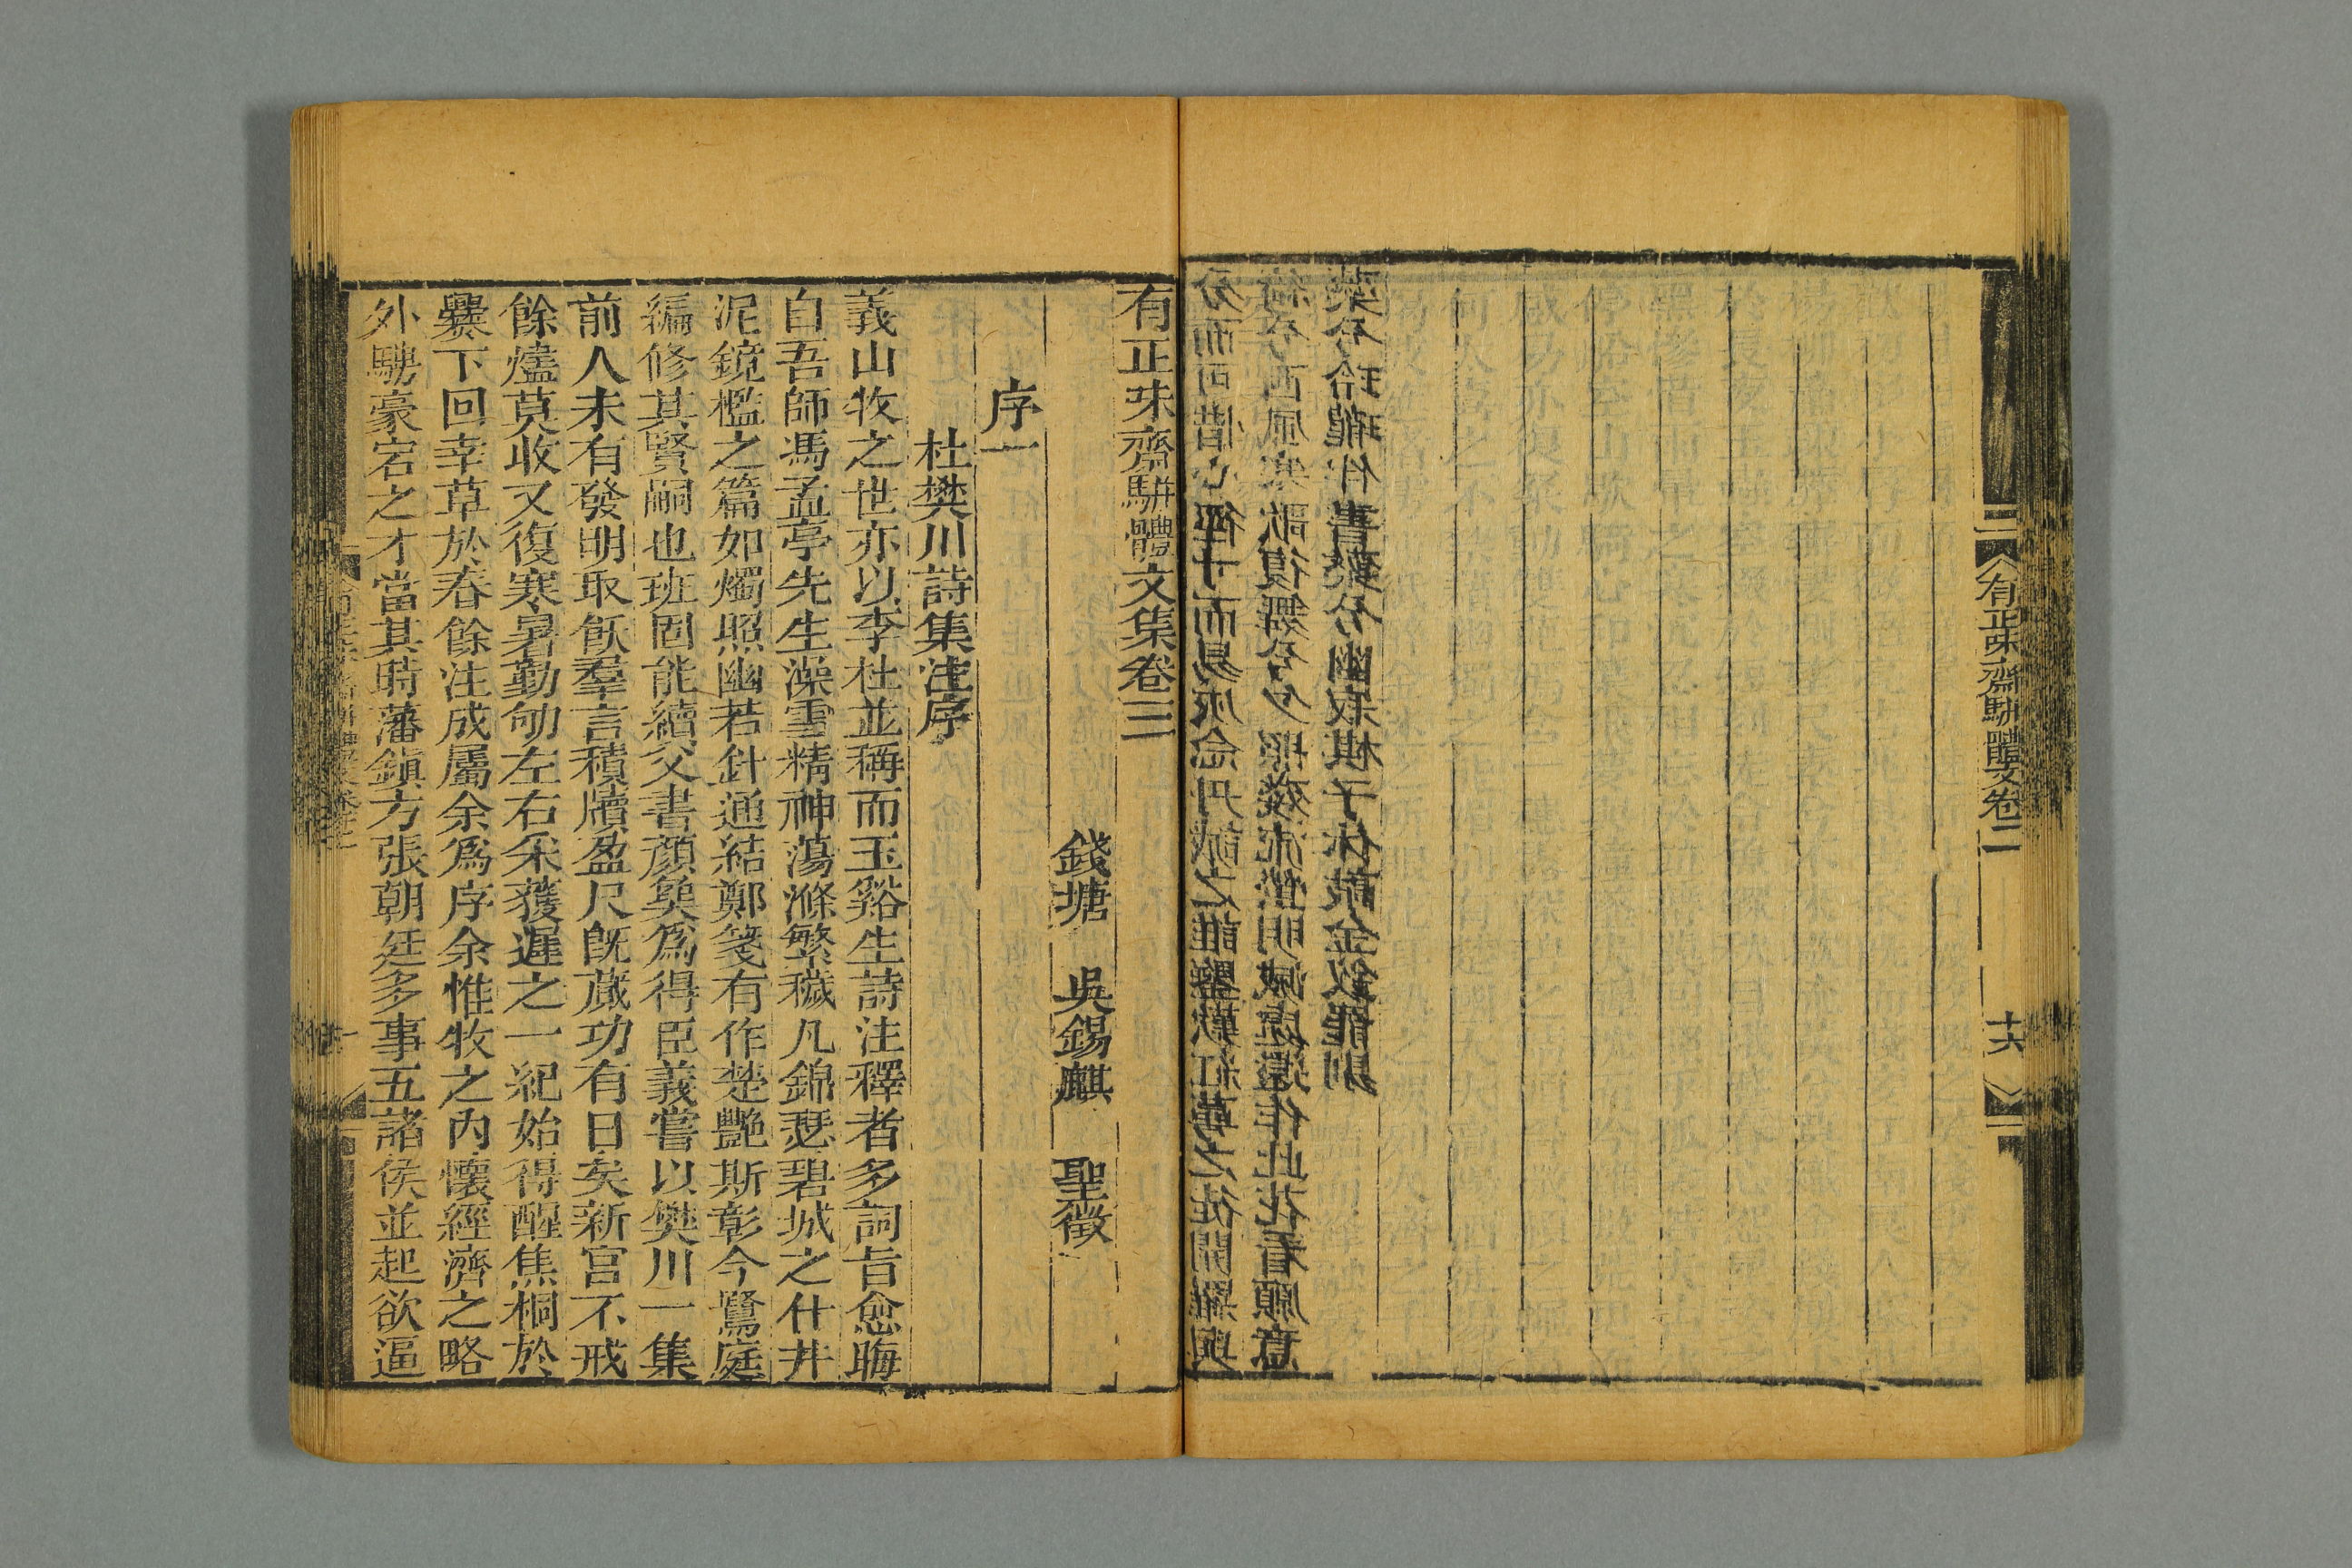 有正味齋駢體文卷二
十六
有正味齋駢體文集卷三
錢塘 吳錫麒 聖徵
序一
杜樊川詩集注序
義山牧之世亦以李杜並稱而玉谿生詩注釋者多詞旨愈晦
自吾師馮孟亭先生澡雪精神蕩滌繁穢凡錦瑟碧城之什井
泥鏡檻之篇如燭照幽若針通結鄭箋有作楚艷斯彰今鷺庭
編修其賢嗣也班固能續父書顏奐爲得臣義嘗以樊川一集
前人未有發明取飫羣言積牘盈尺旣蕆功有日矣新宮不戒
餘燼莫收又復寒暑勤劬左右采獲遲之一紀始得醒焦桐於
爨下回幸草於春餘注成屬余爲序余惟牧之內懷經濟之略
外騁豪宕之才當其時藩鎮方張朝廷多事五諸侯並起欲逼